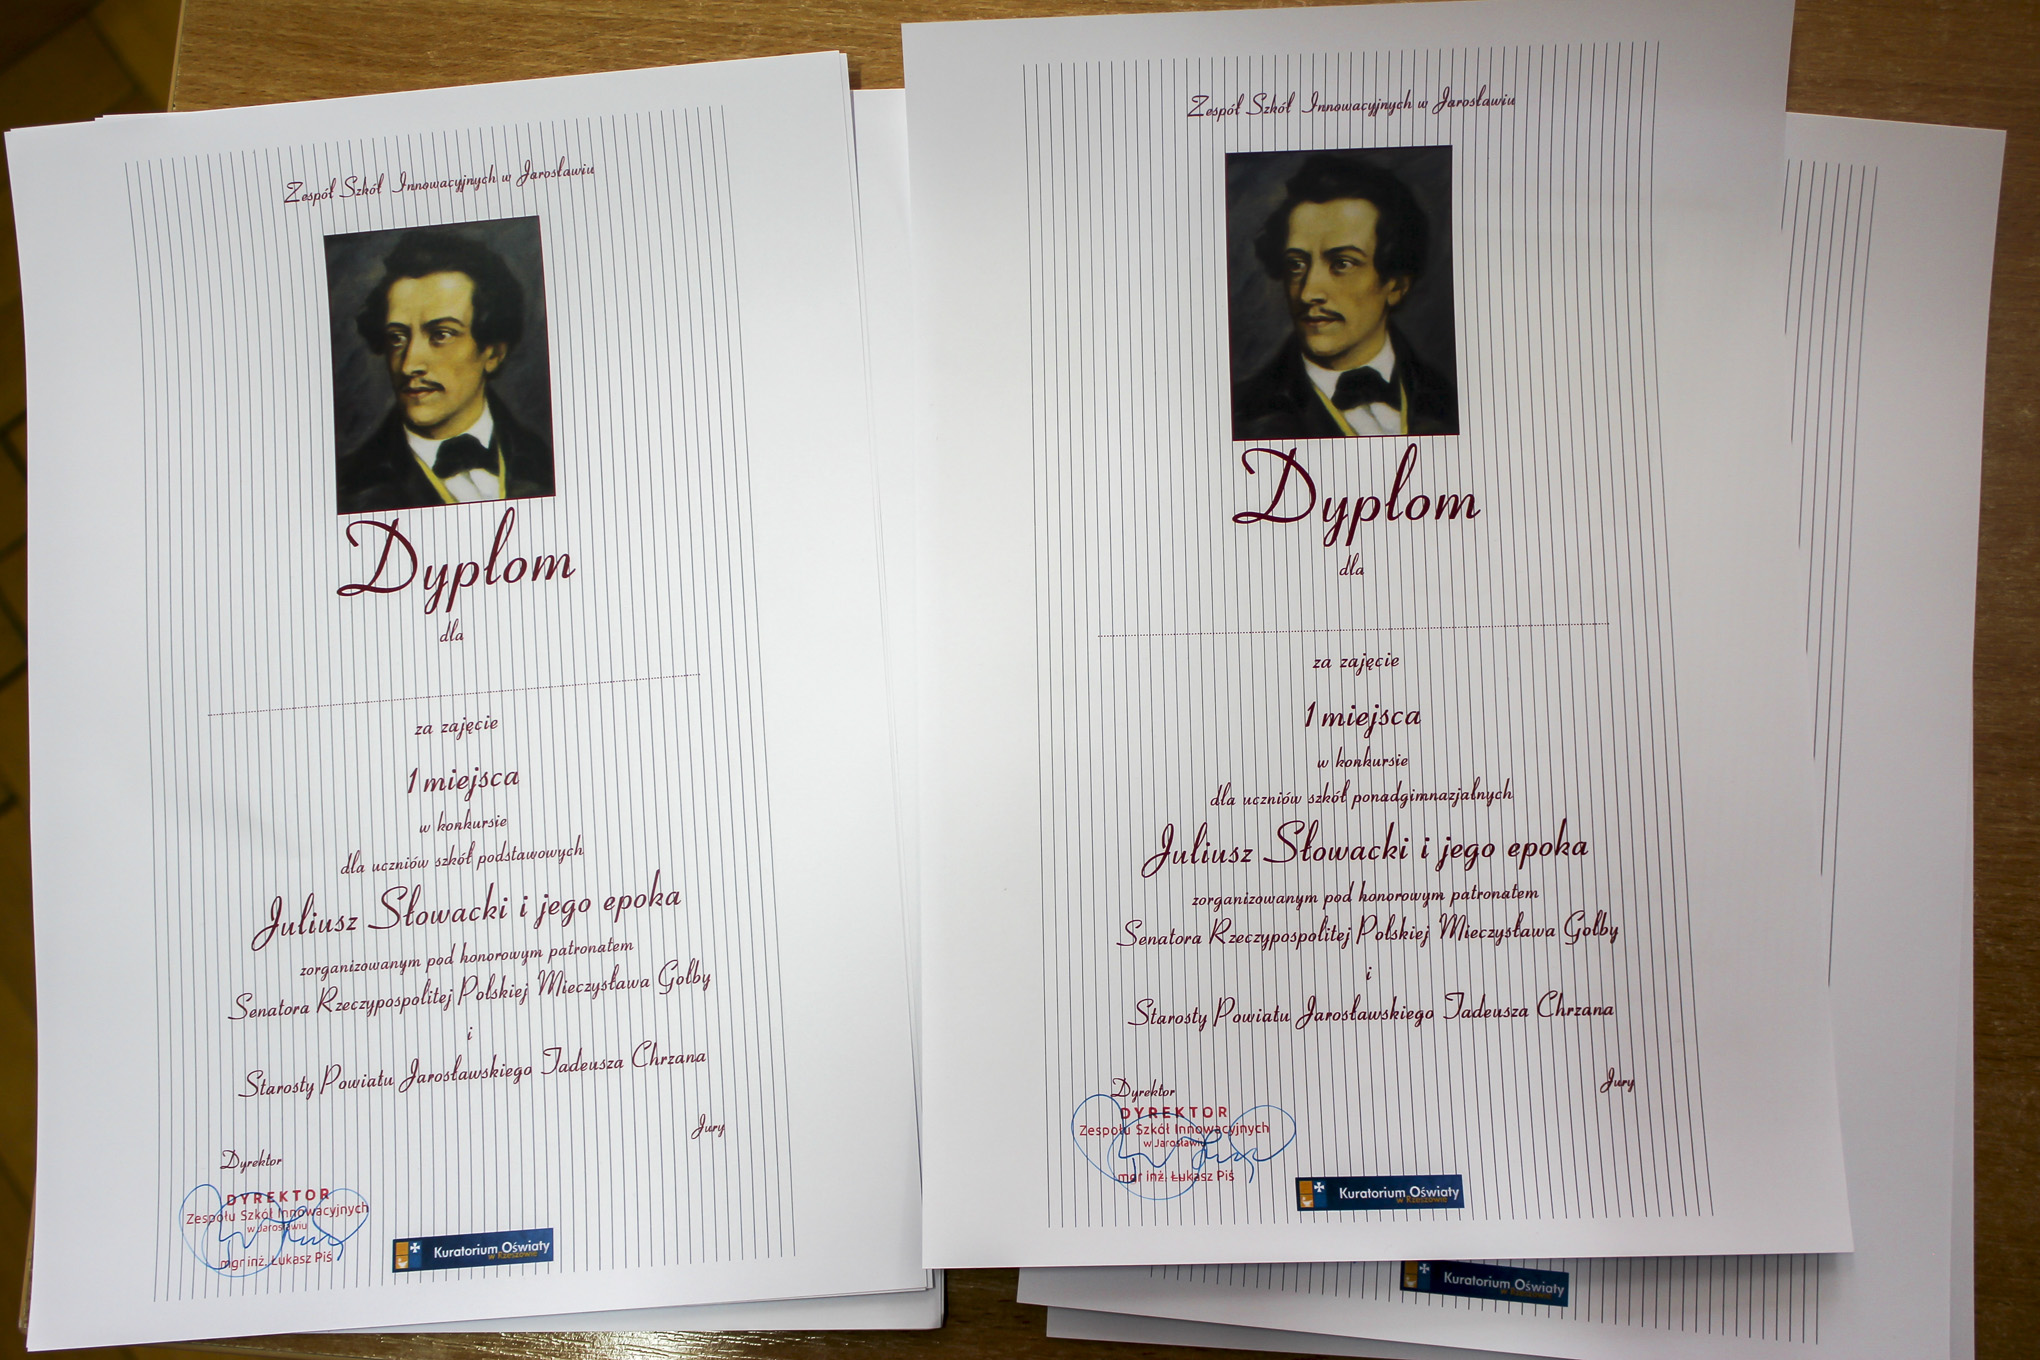 Zespół Szkół Innowacyjnych w Jarosławiu
Dyplom
dla
za zajęcie
1 miejsca
w konkursie
dla uczniów szkół podstawowych
Juliusz Słowacki i jego epoka
zorganizowanym pod honorowym patronatem
Senatora Rzeczypospolitej Polskiej Mieczysława Golby
i
Starosty Powiatu Jarosławskiego Tadeusza Chrzana
Jury
Dyrektor
DYREKTOR
Zespołu Szkół Innowacyjnych
w Jarosławiu
mgr inż. Łukasz Piś
Kuratorium Oświaty
w Rzeszowie
Zespół Szkół Innowacyjnych w Jarosławiu
Dyplom
dla
za zajęcie
1 miejsca
w konkursie
dla uczniów szkół ponadgimnazjalnych
Juliusz Słowacki i jego epoka
zorganizowanym pod honorowym patronatem
Senatora Rzeczypospolitej Polskiej Mieczysława Golby
i
Starosty Powiatu Jarosławskiego Tadeusza Chrzana
Jury
Dyrektor
DYREKTOR
Zespołu Szkół Innowacyjnych
w Jarosławiu
mgr inż. Łukasz Piś
Kuratorium Oświaty
w Rzeszowie
Kuratorium Oświaty
w Rzeszowie